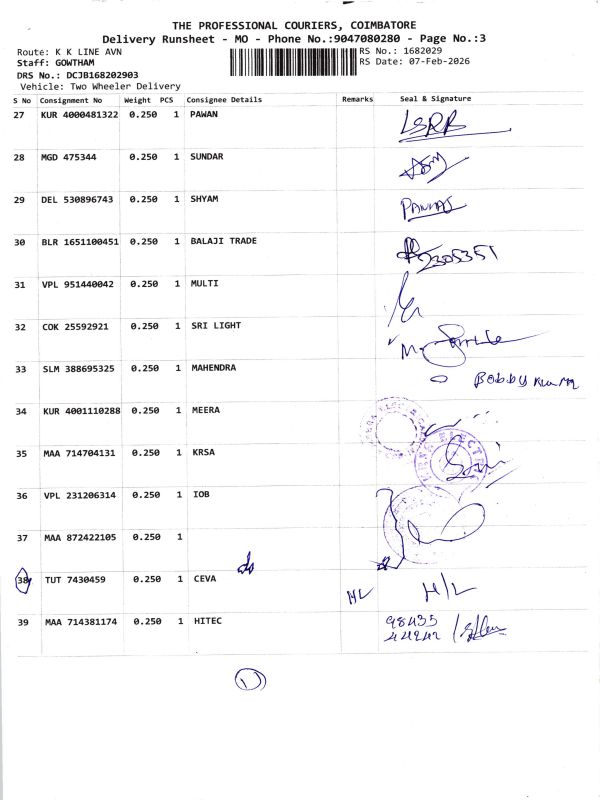 THE PROFESSIONAL COURIERS, COIMBATORE
Delivery Runsheet - MO - Phone No.:9047080280 - Page No.:3
Route: K K LINE AVN RS No.: 1682029
Staff: GOWTHAM RS Date: 07-Feb-2026
DRS No.: DCJB168202903
Vehicle: Two Wheeler Delivery
S No Consignment No Weight PCS Consignee Details Remarks Seal & Signature
27 KUR 4000481322 0.250 1 PAWAN
28 MGD 475344 0.250 1 SUNDAR
29 DEL 530896743 0.250 1 SHYAM PANKAJ
30 BLR 1651100451 0.250 1 BALAJI TRADE
31 VPL 951440042 0.250 1 MULTI
32 COK 25592921 0.250 1 SRI LIGHT
33 SLM 388695325 0.250 1 MAHENDRA Bobby Kumar
34 KUR 4001110288 0.250 1 MEERA
35 MAA 714704131 0.250 1 KRSA
36 VPL 231206314 0.250 1 IOB
37 MAA 872422105 0.250 1
38 TUT 7430459 0.250 1 CEVA HL H/L
39 MAA 714381174 0.250 1 HITEC 98435
44242
1